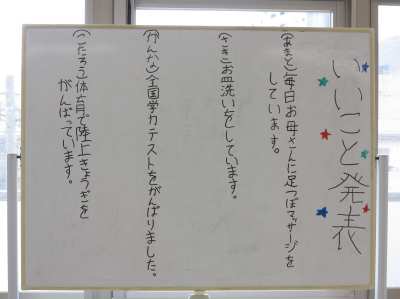 いいこと発表
(あまと)毎日お母さんに足つぼマッサージを
しています。
(さき)お皿洗いをしています。
(かんな)全国学力テストをがんばりました。
(こたろう)体育で陸上きょうぎを
がんばっています。